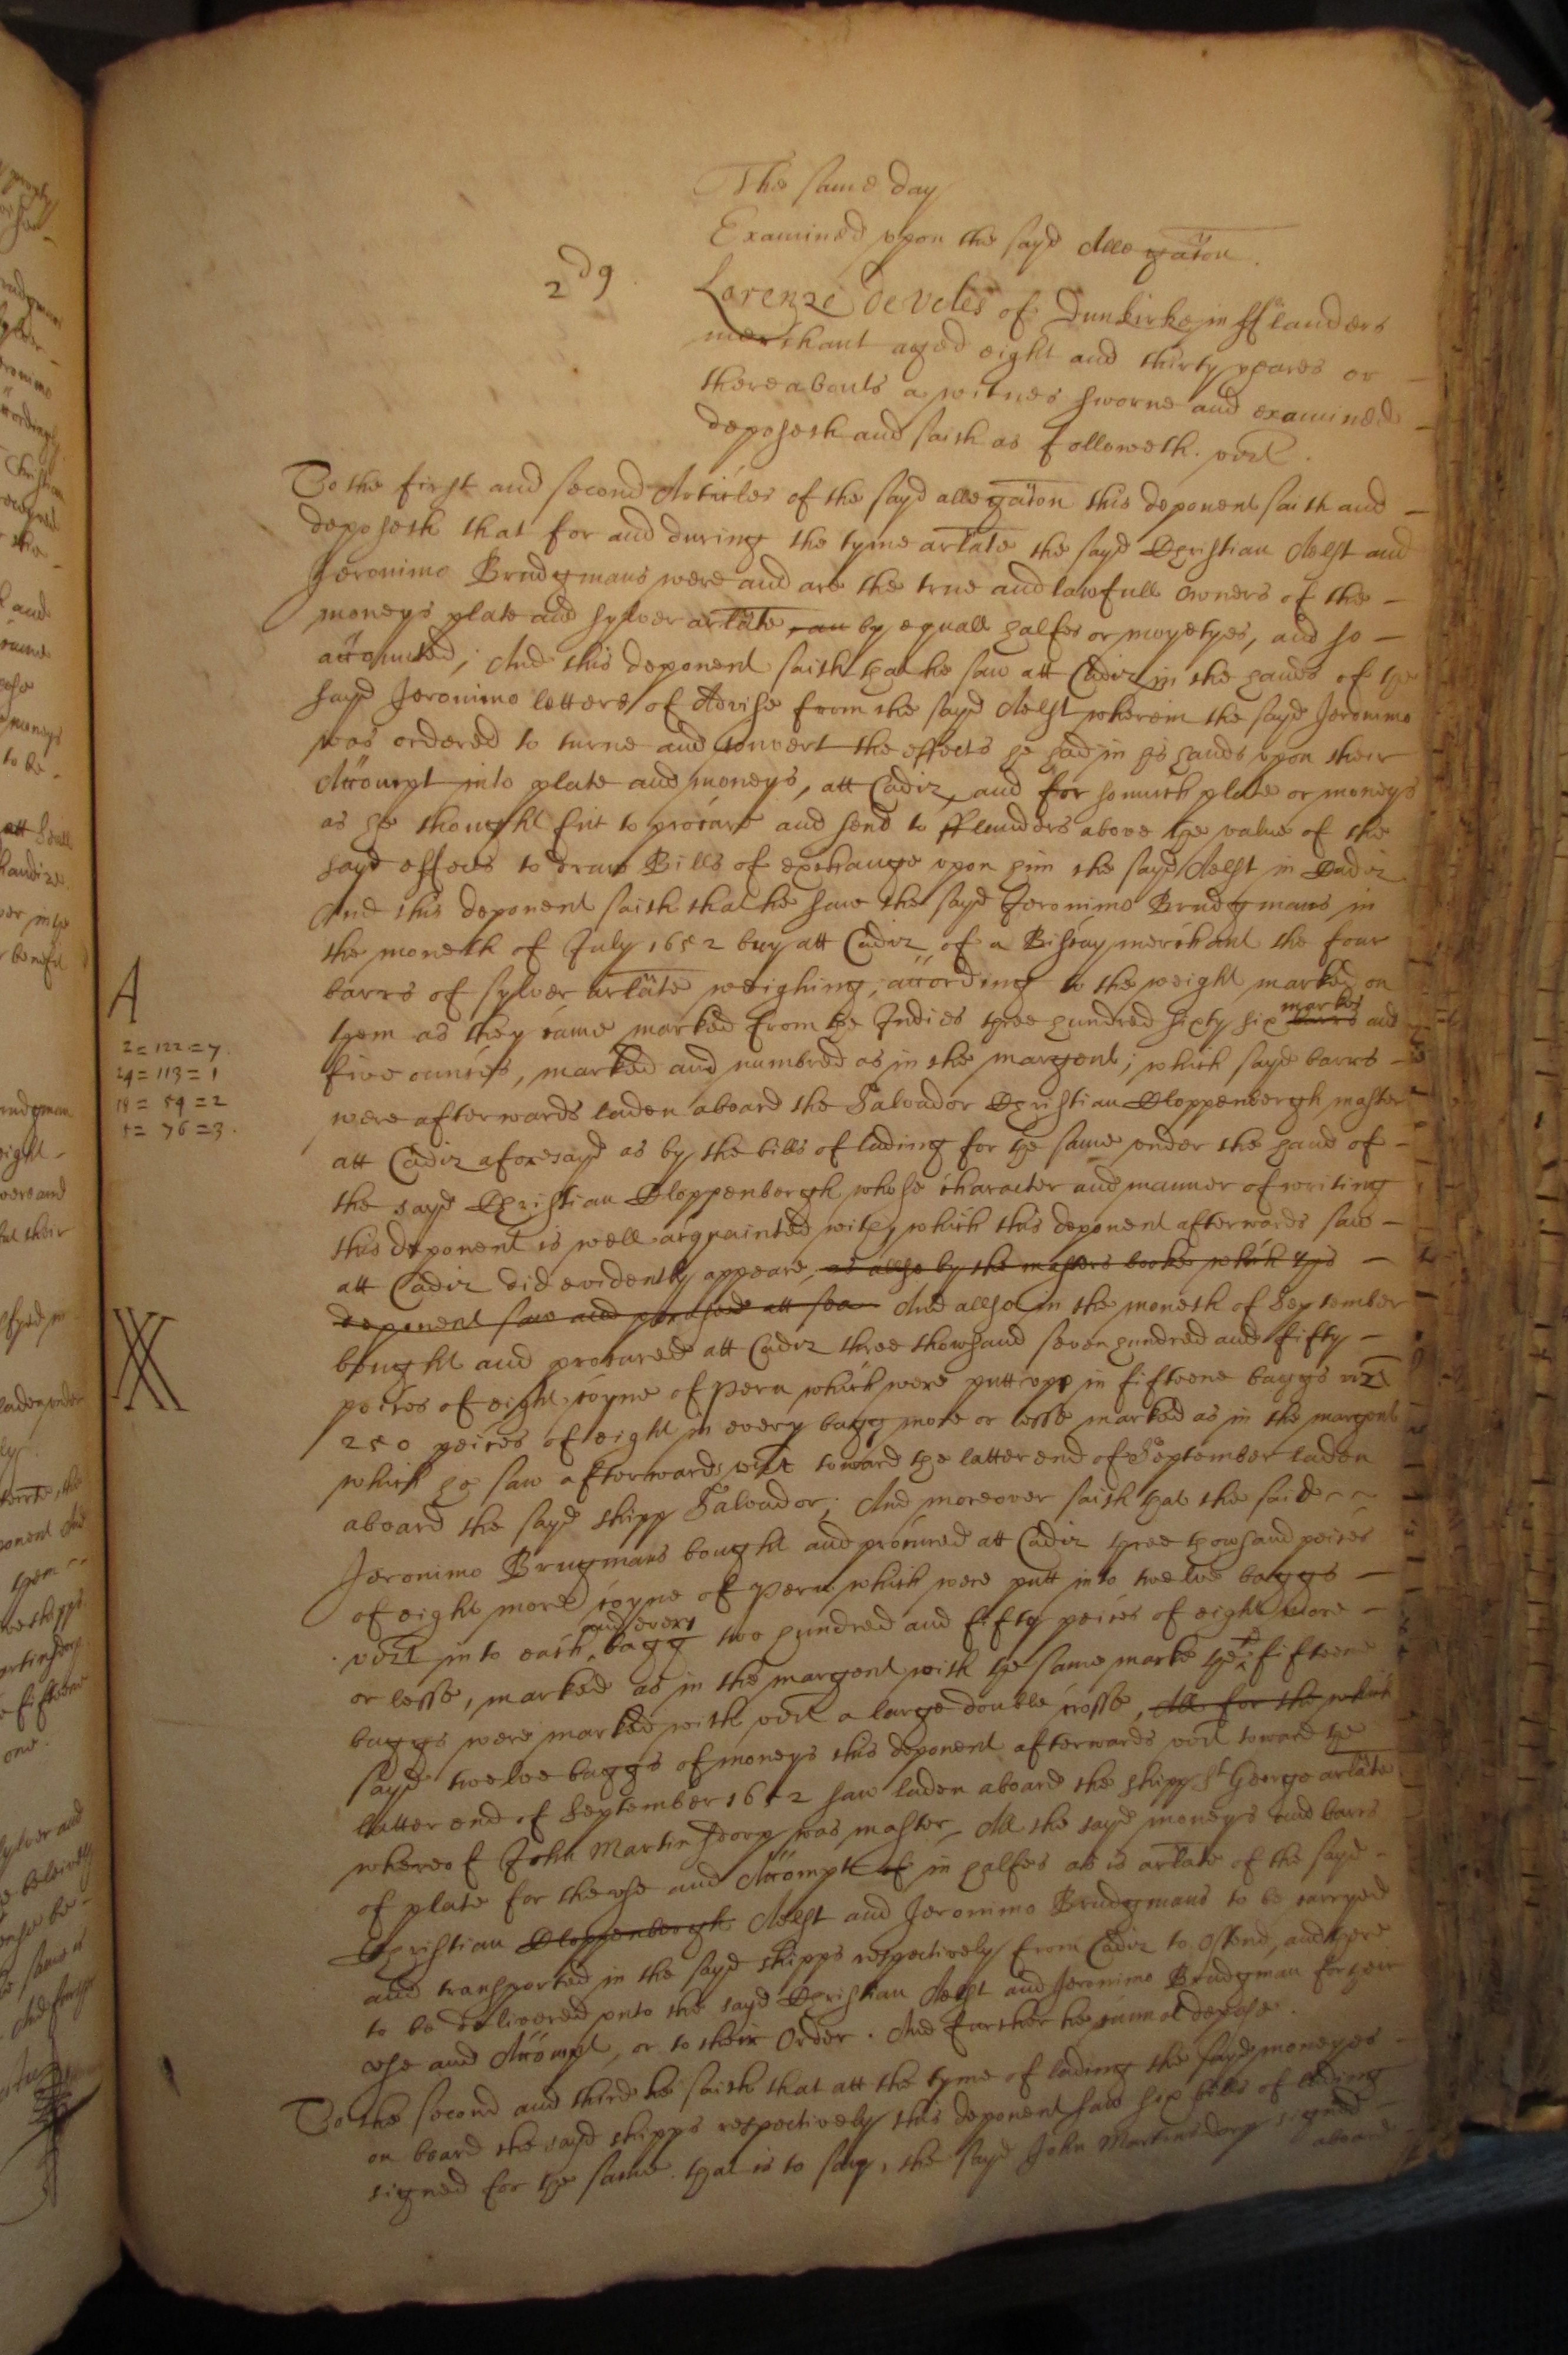 The same day
Examined upon the sayd Allegaton.
2dꝰ. Lorenzo de Veles of Dunkirke in fflanders
merchant aged eight and thirty yeares or
thereabouts a witnes sworne and examined
deposeth and saith as followeth. vizt.
To the first and second Articles of the sayd allegaton this deponent saith and
deposeth that for and during the tyme arlate the sayd Christian Aelst and
Jeronimo Brudgmans were and are the true and lawfull Owners of the
moneys plate and sylver arlate by equall halfes or moyetyes, and so
accounted; And this deponent saith that he saw att Cadiz in the hands of the
sayd Jeronimo letters of Advise from the sayd Aelst wherein the sayd Jeronimo
was ordered to turne and convert the effects he had in his hands upon their
Accompt into plate and moneys, att Cadiz, and for somuch plate or moneys
as he thought fitt to procure and send to fflanders above the value of the
sayd effects to draw Bills of exchange upon him the sayd Aelst in Cadiz
And this deponent saith that he saw the sayd Jeronimo Brudgmans in
the moneth of July 1652 buy att Cadiz of a Biscay merchant the four
barrs of sylver arlate weighing, according to the weight marked on
them as they came marked from the Indies three hundred sixty six barrs marks and
five ounces, marked and numbred as in the margent; which sayd barrs
were afterwards laden aboard the Salvador Christian Cloppenbergh master
att Cadiz aforesayd as by the bills of lading for the same under the hand of
the sayd Christian Cloppenborgh whose character and manner of writing
this deponent is well acquainted with, which this deponent afterwards saw
att Cadiz did evidently appeare, as allso by the masters booke which this
deponent saw and perused att sea And allso in the moneth of September
bought and procured att Cadiz three thowsand seven hundred and fifty
peices of eight coyne of Peru which were putt upp in fifteene baggs vizt
250 peices of eight in every bagg more or lesse marked as in the margent
which he saw afterwards vizt toward the latter end of September laden
aboard the sayd shipp Salvador; And moreover saith that the said
Jeronimo Brugmans bought and procured att Cadiz three thowsand peices
of eight more coyne of Peru which were putt into twelve baggs
vizt into each and every bagg two hundred and fifty peices of eight more
or lesse, marked as in the margent with the same marke the fifteene
baggs were marked with vizt a large double crosse, All for the which
sayd twelve baggs of moneys this deponent afterwards vizt toward the
latter end of September 1652 saw laden aboard the shipp St George arlate
whereof John Martinsdorp was master, All the sayd moneys and barrs
of plate for the use and Accompt of in halfes as is arlate of the sayd
Christian Cloppenborgh Aelst and Jeronimo Brudgmans to be carryed
and transported in the sayd shipps respectively from Cadiz to Ostend, and there
to be delivered unto the sayd Christian Aelst and Jeronimo Brudgman for their
use and Accompt, or to their Order. And further he cannot depose.
To the second and third he saith that att the tyme of lading the sayd moneyes
on board the sayd shipps respectively this deponent saw six bills of lading
signed for the same. that is to say, the sayd John Martinsdorp signed
aboard
A
2=122=7.
24=113=1
18=59=2
5=76=3.
XX